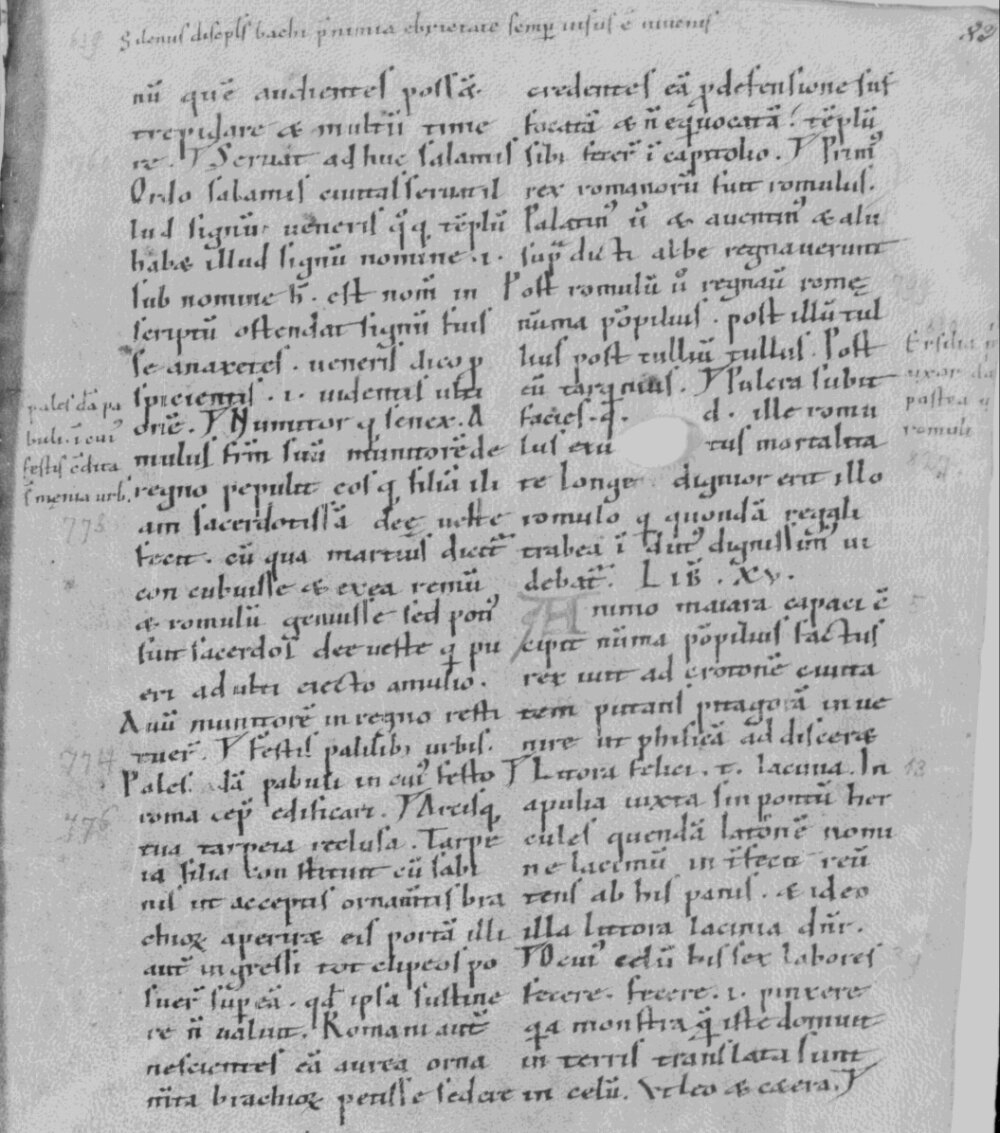 Sidenus disclpls bachi p nimia ebrietate semp uisus ē iuuenis
nū quē audientes possæ
trepidare æ multū time
re. Seruat ad huc salamis
Ordo salamis ciuitas seruat il
lud signū ueneris q̊q templū
habæ illud signū nomine .i.
sub nomine h̄. est nom̄ in
scriptū ostendat signū fuis
se anaxetes. ueneris dico p
spicientis .i. uidentis ubi
oriē. Numitor q senex. A
mulus frm̄ suū munitorē de
regno pepulit eosq filiā ili
am sacerdotissā deę uestę
fecit. cū qua martius dicit̄
concubuisse æ ex ea remū
æ romulū genuisse sed poti᾽
fuit sacerdos dee ueste q pu
eri ad ubi eiecto amulio.
Auū munitorē in regno resti
tuer̄. Festis palilib; urbis.
Pales dā pabuli in cui᾽ festo
roma cep̄ edificari. Arcisq
tua tarpeia reclusa. Tarpe
ia filia constituit cū sabi
nis ut acceptis ornam̄tis bra
chioꝝ aperiræ eis portā illi
aut̄ ingressi tot clipeos po
suer̄ sup eā. qd ipsa sustine
re n̄ ualuit. Romani aut̄
nescientes eā aurea orna
m̄ta brachioꝝ petisse sedere
pales dā pa
buli. ī cui᾽
festis c̄dita
s̄ męnia urb.
778
774
776
credentes eā p defensione suf
focatā æ n̄ equocatā. tēplū
sibi fecer̄ ī capitolio. Prim᾽
rex romanorū fuit romulus.
Palatin᾽ ū æ auentin᾽ æ alii
sup̄ dicti albe regnauerunt
Post romulū ū regnaū romę
nūma pōpilius. post illū tul
lius post tulliū tullus. Post
eū tarqinius. Pulcra subit
facies .q. d. ille romu
lus exu tus mortalita
te longe dignior erit illo
romulo q quondā regali
trabea ī dut᾽ dignissim᾽ ui
debat̄. LIB̄. XV.
Animo maiara capaci ē
cipit nūma pōpilius factus
rex iuit ad crotonē ciuita
tem putans pitagorā inue
nire ut phisicā ad disceræ
Litora felici. t. lacinia. In
apulia iuxta sinpontū her
cules quendā latonē nomi
ne lacinū in t̄fecit reū
tens ab his panis. æ ideo
illa littora lacinia dn̄r.
Cui᾽ celū bis sex labores
fecere. fecere .i. pinxere
q̄a monstra q̄ iste domuit
in terris translata sunt
in celū. Vt leo æ cæera.
Ersilia
uxor
postea q
romuli
827
5
13